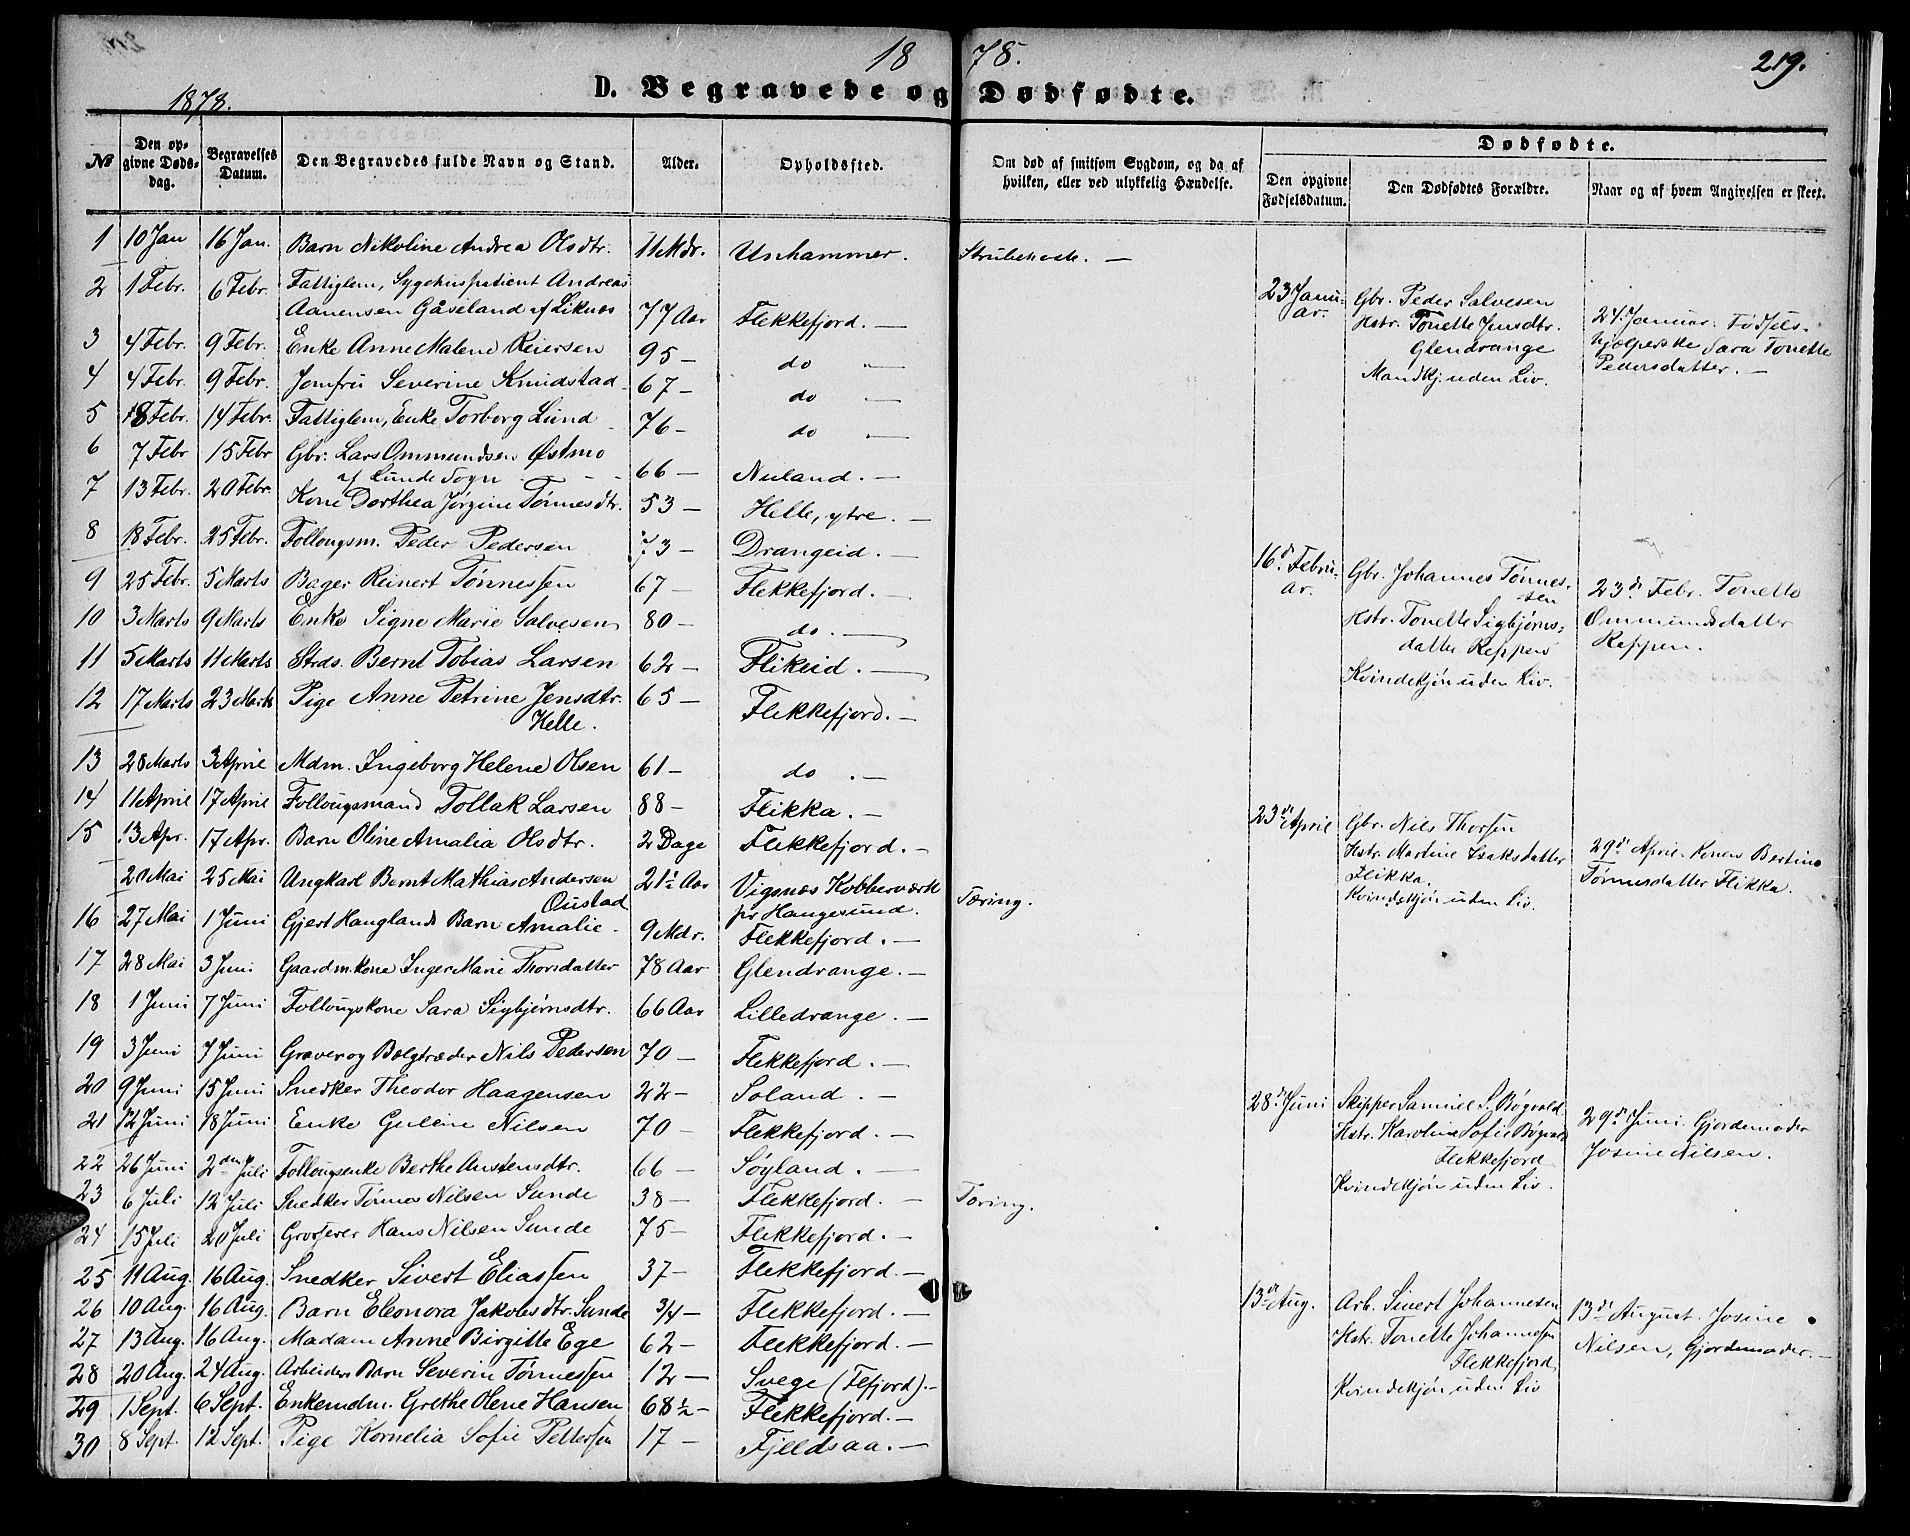 1878.
219.
1878.
D. Begravede og Dødfødte.
№
Den opgivne Dødsdag.
Begravelses Datum.
Den Begravedes fulde Navn og Stand.
Alder.
Opholdsfted.
Om død af smitsom Sygdom, og da af hvilken, eller ved ulykkelig Hændelse.
Dødfødte.
Den opgivne Fødselsdatum.
Den Dødfødtes Forældre.
Naar og af hvem Angivelsen er skeet.
1 10 Jan 16 Jan. Barn Nikoline Andrea Olsdtr. 11 Mdr. Unhammer. Strubehoste. —
2 1 Febr. 6 Febr. Fattiglem, Sygehuspatient Andreas
Aanensen Gåseland af Liknes 77 Aar Flekkefjord. —
3 4 Febr. 9 Febr. Enke Anne Malene Reiersen 95 — do —
4 4 Febr. 9 Febr. Jomfru Severine Knudstad 67 — do —
5 8 Febr. 14 Febr. Fattiglem, Enke Torborg Lund 76 — do —
6 7 Febr 15 Febr Gbr. Lars Ommundsen Østmo
af Lunde Sogn 66 — Nuland. —
7 13 Febr. 20 Febr. Kone Dorthea Jørgine Tønnesdtr. 53 — Helle, ytre. —
8 18 Febr. 25 Febr. Follougsm. Peder Pedersen 73 — Drangeid. —
9 25 Febr. 5 Marts Bager Reinert Tønnessen 67 — Flekkefjord. —
10 3 Marts 9 Marts Enke Signe Marie Salvesen 80 — do. —
11 5 Marts 11 Marts Strds. Bernt Tobias Larsen 62 — Flikeid. —
12 17 Marts 23 Marts Pige Anne Petrine Jensdtr. 65 — Flekkefjord. —
Helle.
13 28 Marts 3 April Mdm. Ingeborg Helene Olsen 61 — do . —
14 11 April 17 April Follougsmand Tollak Larsen 88 — Flikka. —
15 13 Apr. 17 Apr. Barn Oline Amalia Olsdtr. 2 Dage Flekkefjord. —
20 Mai 25 Mai Ungkarl Bernt Mathias Andersen 21½ Aar Vigsnæs Kobberværk Tæring.
Oustad pr Haugesund.
16 27 Mai 1 Juni Gjert Hauglands Barn Amalie. 9 Mdr. Flekkefjord. —
17 28 Mai 3 Juni Gaardm.kone Inger Marie Thorsdatter 78 Aar Glendrange. —
18 1 Juni 7 Juni Follougskone Sara Sigbjørnsdtr. 66 Aar Lilledrange. —
19 3 Juni 7 Juni Graver og Bælgtræder Nils Pedersen 70 — Flekkefjord. —
20 9 Juni 15 Juni Snedker Theodor Haagensen 22 — Soland. —
21 12 Juni 18 Juni Enke Guline Nilsen 70 — Flekkefjord. —
22 26 Juni 2den Juli Follougsenke Berthe Anstensdtr. 66 — Søyland. —
23 6 Juli 12 Juli Snedker Tønnes Nilsen Sunde 38 — Flekkefjord. — Tæring.
24 15 Juli 20 Juli Grosserer Hans Nilsen Sunde 75 — Flekkefjord. —
25 11 Aug. 16 Aug. Snedker Sivert Eliassen 37 — Flekkefjord. —
26 10 Aug. 16 Aug. Barn Eleonora Jakobsdtr. Sunde 3/4 — Flekkefjord. —
27 13 Aug. 16 Aug. Madam Anne Birgitte Ege 62 — Flekkefjord. —
28 20 Aug. 24 Aug. Arbeiders Barn Severin Tønnessen 12 — Svege (Fefjord). —
29 1 Sept. 6 Sept. Enkemdm. Grethe Olene Hansen 68½ — Flekkefjord. —
30 8 Sept. 12 Sept. Pige Kornelia Sofie Pettersen 17 — Fjeldsaa. —
23 Januar.
Gbr. Peder Salvesen
Hstr. Tonette Jensdtr.
Glendrange
Mandkj. uden Liv.
24. Januar. Fødsels-
hjælperske Sara Tonette
Pedersdatter. —
16d Februar.
Gbr. Johannes Tønnes-
sen
Hstr. Tonette Sigbjørns-
datter Reppen
Kvindekjøn uden Liv.
23d Febr. Tonette
Ommundsdatter
Reppen.
23d April
Gbr. Nils Thorsen
Hstr. Martine Isaksdatter
Flikka.
Kvindekjøn uden Liv.
29d April. Konen Bertine
Tønnesdatter Flikka.
28d Juni
Skipper Samuel S. Bøgvald
Hstr. Karoline Sofie Bøgvald
Flekkefjord
Kvindekjøn uden Liv.
29d Juni. Gjordemoder
Josine Nilsen.
13d Aug.
Arb. Sivert Johannesen
Hstr. Tonette Johannesen
Flekkefjord
Kvindekjøn uden Liv
13d August. Josine
Nilsen, Gjordemoder. —